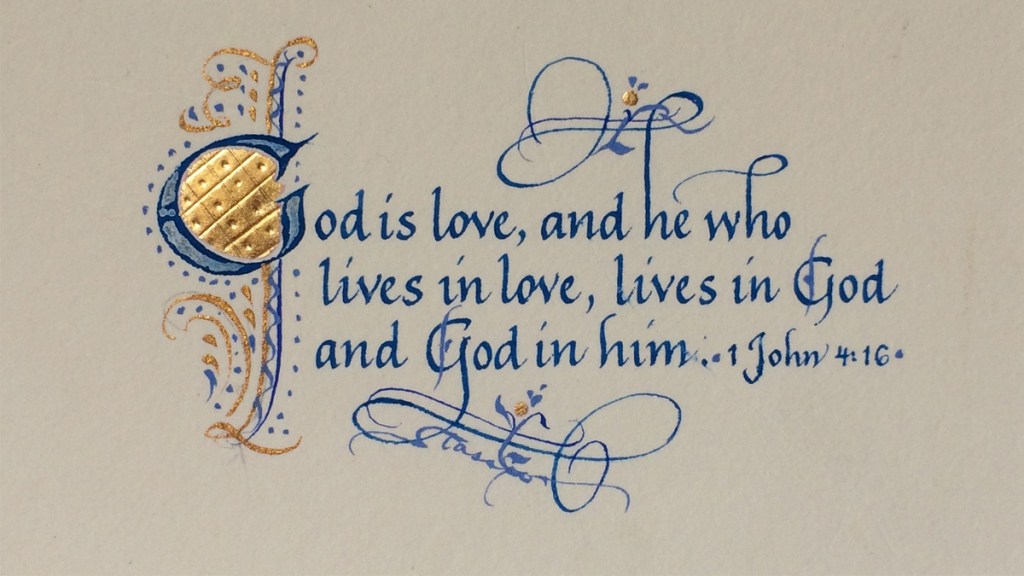 God is love, and he who
lives in love, lives in God
and God in him. · 1 John 4:16 ·